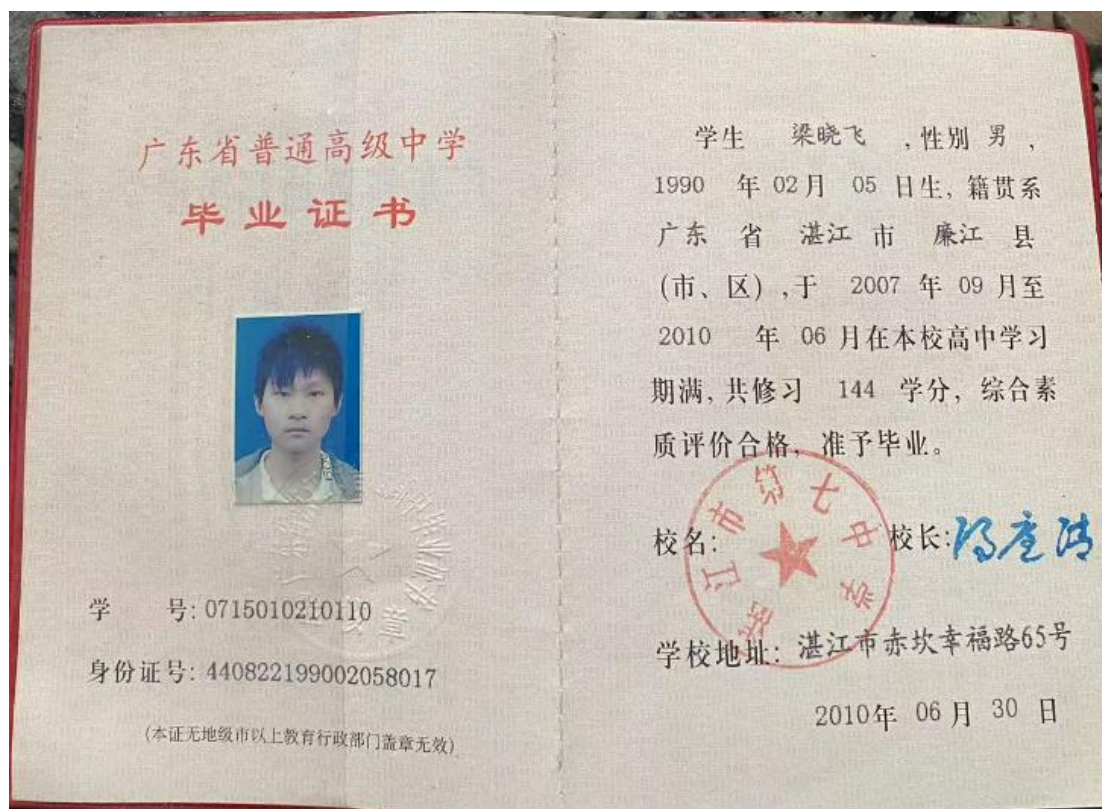 广东省普通高级中学
毕业证书
学 号: 0715010210110
身份证号: 440822199002058017
(本证无地级市以上教育行政部门盖章无效)
学生 梁晓飞 ,性别 男 ,
1990 年 02月 05 日生, 籍贯系
广东 省 湛江 市 廉江 县
(市、区) ,于 2007 年 09 月至
2010 年 06 月在本校高中学习
期满, 共修习 144 学分, 综合素
质评价合格, 准予毕业。
湛江市第七中学
校名: 校长:
学校地址: 湛江市赤坎幸福路65号
2010年 06 月 30 日